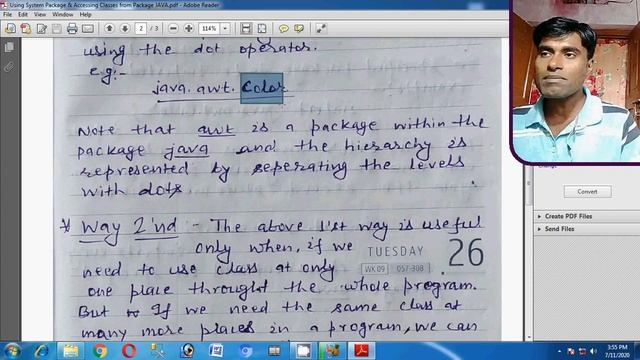 Using System Package & Accessing Classes from Package JAVA.pdf - Adobe Reader
2 / 3
114%
using the dot operator.
e.g:-
java. awt. Color
Note that awt is a package within the
package java and the hierarchy is
represented by seperating the levels
with dots.
Way 2'nd - The above 1'st way is useful
only when, if we
TUESDAY
26
WK 09 057-308
need to use class at only
one place throught the whole program.
But If we need the same class at
many more places in a program, we can
Convert
Create PDF Files
Send Files
3:55 PM
7/11/2020